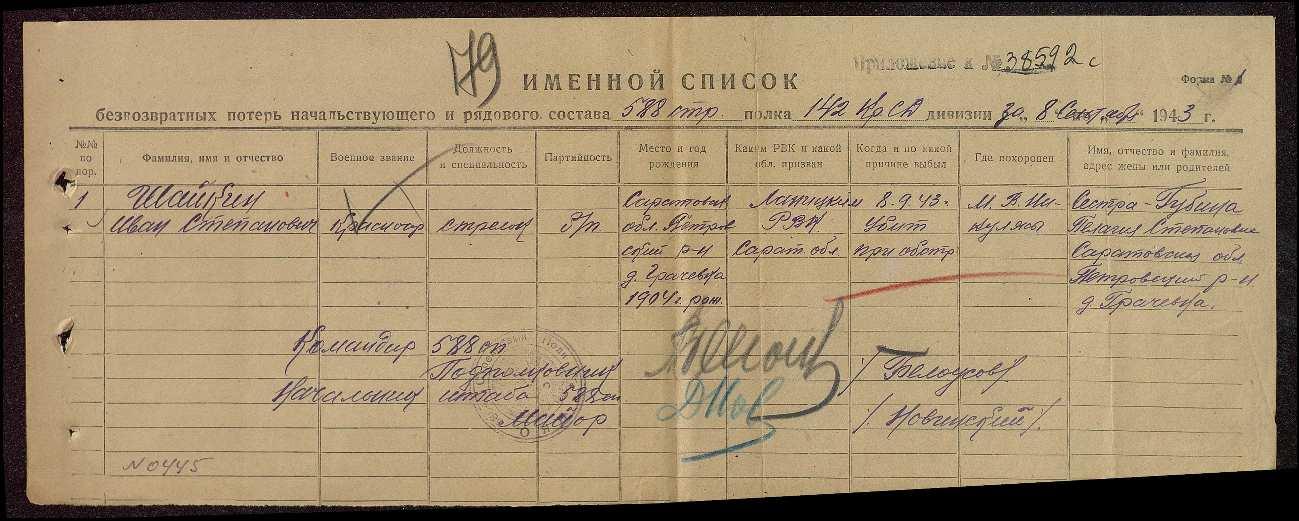 79
Приложение к № 38592с
ИМЕННОЙ СПИСОК
Форма № 1
безвозвратных потерь начальствующего и рядового состава 588 стр. полка 142 КрСД дивизии за „8" Сентября 1943 г.
№№ по пор.
Фамилия, имя и отчество
Военное звание
Должность и специальность
Партийность
Место и год рождения
Каким РВК и какой обл. призван
Когда и по какой причине выбыл
Где похоронен
Имя, отчество и фамилия, адрес жены или родителей
1 Шайкин Саратовск 8.9.43г. М. В. Ни- Сестра - Губина
Иван Степанович Красноар стрелок б/п обл. Петров РВК Убит Пелагия Степановна
ский р-н Сарат. обл при обстр Саратовская обл
д. Грачевка Петровский р-н
1904 г. рож. д. Грачевка.
Командир 588 сп
Подполковник /Белоусов/
Начальник штаба 588 сп
Майор /Новинский/.
N 0445